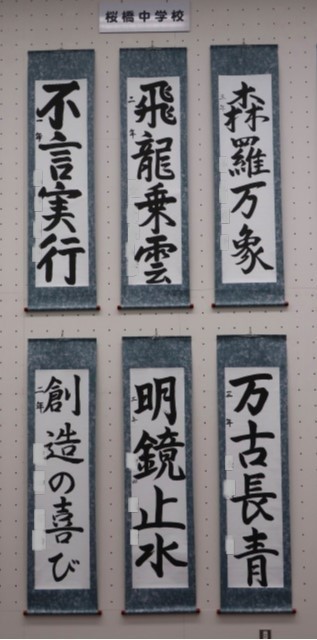 桜橋中学校
森羅万象
飛龍乗雲
二年
不言実行
万古長青
明鏡止水
創造の喜び
二年